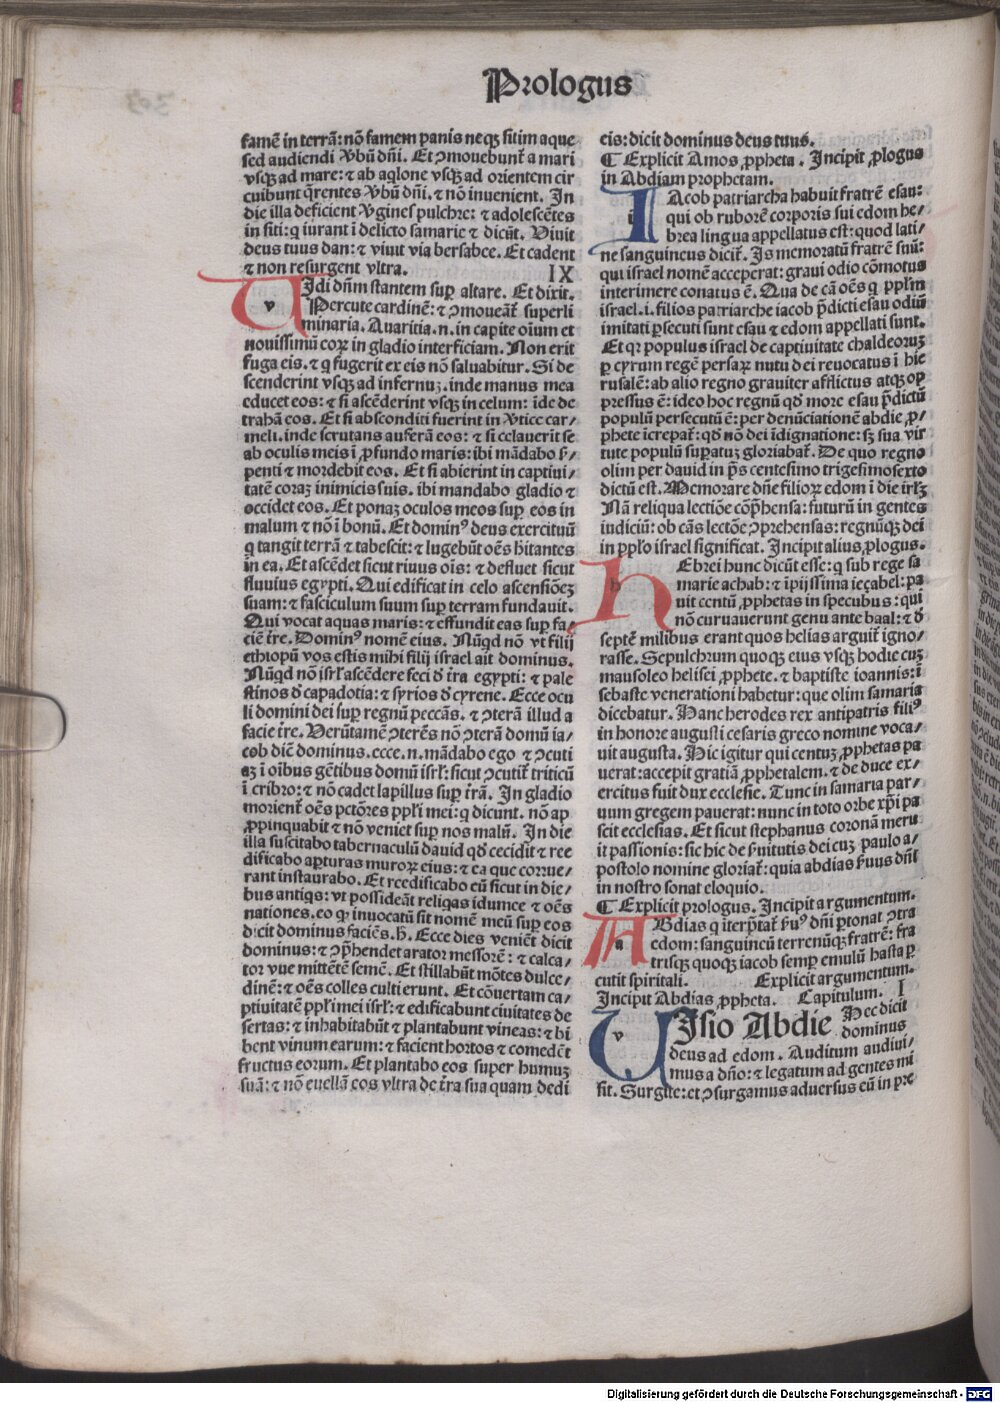 Prologus
famē in terrā: nō famem panis neqꝫ sitim aque
sed audiendi ꝟbū dñi. Et ꝯmouebunt̄ a mari
vsqꝫ ad mare: ⁊ ab aqlone vsqꝫ ad orientem cir
cuibunt q̄rentes ꝟbū dñi. ⁊ nō inuenient. In
die illa deficient ꝟgines pulchre: ⁊ adolescētes
in siti: q iurant ī delicto samarie ⁊ dicūt. Viuit
deus tuus dan: ⁊ viuit via bersabee. Et cadent
⁊ non resurgent vltra. IX
v Idi dn̄m stantem suꝑ altare. Et dixit.
Percute cardinē: ⁊ ꝯmoueāt̄ superli
minaria. Auaritia .n. in capite oīum et
nouissimū coꝝ in gladio interficiam. Non erit
fuga eis. ⁊ q fugerit ex eis nō saluabitur. Si de
scenderint vsqꝫ ad infernuꝫ. inde manus mea
educet eos: ⁊ si ascēderint vsqꝫ in celum: īde de
trahā eos. Et si absconditi fuerint in ꝟtice car/
meli. inde scrutans auferā eos: ⁊ si celauerit se
ab oculis meis ī ꝓfundo maris: ibi mādabo ẜ/
penti ⁊ mordebit eos. Et si abierint in captiui/
tatē coraꝫ inimicis suis. ibi mandabo gladio ⁊
occidet eos. Et ponaꝫ oculos meos suꝑ eos in
malum ⁊ nō ī bonū. Et dominꝰ deus exercituū
q tangit terrā ⁊ tabescit: ⁊ lugebūt oēs h̄itantes
in ea. Et ascēdet sicut riuus oīs: ⁊ defluet sicut
fluuius egypti. Qui edificat in celo ascensiōeꝫ
suam: ⁊ fasciculum suum suꝑ terram fundauit.
Qui vocat aquas maris: ⁊ effundit eas suꝑ fa/
ciē tr̄e. Dominꝰ nomē eius. Nūqd nō vt filij
ethiopū vos estis mihi filij israel ait dominus.
Nūqd nō isrl̄ ascēdere feci d̄ tr̄a egypti: ⁊ pale
stinos d̄ capadotia: ⁊ syrios d̄ cyrene. Ecce ocu
li domini dei suꝑ regnū peccās. ⁊ ꝯterā illud a
facie tr̄e. Verūtamē ꝯterēs nō ꝯterā domū ia/
cob dic̄ dominus. ecce .n. mādabo ego ⁊ ꝯcuti
aꝫ ī oībus gētibus domū isrl̄: sicut ꝯcutit̄ triticū
ī cribro: ⁊ nō cadet lapillus suꝑ tr̄ā. In gladio
morient̄ oēs pctōres ppl̄i mei: q dicunt. nō ap
ꝓpinquabit ⁊ nō veniet suꝑ nos malū. In die
illa suscitabo tabernaculū dauid qd̄ cecidit ⁊ ree
dificabo aꝑturas muroꝝ eius: ⁊ ea que corrue/
rant instaurabo. Et reedificabo eū sicut in die/
bus antiqs: vt possideāt reliqas idumee ⁊ oēs
nationes. eo qꝙ inuocatū sit nomē meū suꝑ eos
dicit dominus faciēs. h̄. Ecce dies veniēt dicit
dominus: ⁊ ꝯp̄hendet arator messorē: ⁊ calca/
tor vue mittētē semē. Et stillabūt mōtes dulce/
dinē: ⁊ oēs colles culti erunt. Et cōuertam ca/
ptiuitatē ppl̄i mei isrl̄: ⁊ edificabunt ciuitates de
sertas: ⁊ inhabitabūt ⁊ plantabunt vineas: ⁊ bi
bent vinum earum: ⁊ facient hortos ⁊ comedēt
fructus eorum. Et plantabo eos super humuꝫ
suā: ⁊ nō euellā eos vltra de tr̄a sua quam dedi
eis: dicit dominus deus tuus.
¶ Explicit Amos ꝓpheta. Incipit ꝓlogus
in Abdiam prophetam.
i IAcob patriarcha habuit fratrē esau:
qui ob ruborē corporis sui edom he/
brea lingua appellatus est: quod lati/
ne sanguineus dicit̄. Is memoratū fratrē suū:
qui israel nomē acceperat: graui odio cōmotus
interimere conatus ē. Qua de cā oēs q ppl̄m
israel .i. filios patriarche iacob p̄dicti esau odiū
imitati ꝑsecuti sunt esau ⁊ edom appellati sunt.
Et qꝛ populus israel de captiuitate chaldeoruꝫ
ꝑ cyrum regē persaꝝ nutu dei reuocatus ī hie
rusalē: ab alio regno grauiter afflictus atqꝫ op
pressus ē: ideo hoc regnū qd̄ more esau p̄dictū
populū persecutū ē: per denūciationē abdie ꝓ/
phete īcrepat̄: qd̄ nō dei īdignatione: sꝫ sua vir
tute populū suꝑatuꝫ gloriabat̄. De quo regno
olim per dauid in p̄s centesimo trigesimosexto
dictū est. Memorare dn̄e filioꝝ edom ī die irl̄ꝫ
Nā reliqua lectiōe cōp̄hensa: futurū in gentes
iudiciū: ob cās lectōe ꝯprehensas: regnūqꝫ dei
in ppl̄o israel significat. Incipit alius ꝓlogus.
h HEbrei hunc dicūt esse: q sub rege sa
marie achab: ⁊ īpijssima ieçabel: pa
uit centū ꝓphetas in specubus: qui
nō curuauerunt genu ante baal: ⁊ d̄
septē milibus erant quos helias arguit̄ igno/
rasse. Sepulchrum quoqꝫ eius vsqꝫ hodie cuꝫ
mausoleo helisei ꝓphete. ⁊ baptiste ioannis: ī
sebaste venerationi habetur: que olim samaria
dicebatur. Hanc herodes rex antipatris filiꝰ
in honore augusti cesaris greco nomine voca/
uit augusta. Hic igitur qui centuꝫ ꝓphetas pa
uerat: accepit gratiā ꝓphetalem. ⁊ de duce ex/
ercitus fuit dux ecclesie. Tunc in samaria par/
uum gregem pauerat: nunc in toto orbe xp̄i pa
scit ecclesias. Et sicut stephanus coronā meru
it passionis: sic hic de ẜuitutis dei cuꝫ paulo a/
postolo nomine gloriat̄: quia abdias ẜuus dn̄i
in nostro sonat eloquio.
¶ Explicit prologus. Incipit argumentum.
a ABdias q iterp̄tat̄ ẜuꝰ dn̄i ꝑtonat ꝯtra
edom: sanguineū terrenūqꝫ fratrē: fra
trisqꝫ quoqꝫ iacob semꝑ emulū hasta ꝑ
cutit spiritali. Explicit argumentum.
Incipit Abdias ꝓpheta. Capitulum. I
v VIsio Abdie Hec dicit
dominus
deus ad edom. Auditum audiui/
mus a dn̄o: ⁊ legatum ad gentes mi
sit. Surgite: et ꝯsurgamus aduersus eū in pre
Digitalisierung gefördert durch die Deutsche Forschungsgemeinschaft - DFG